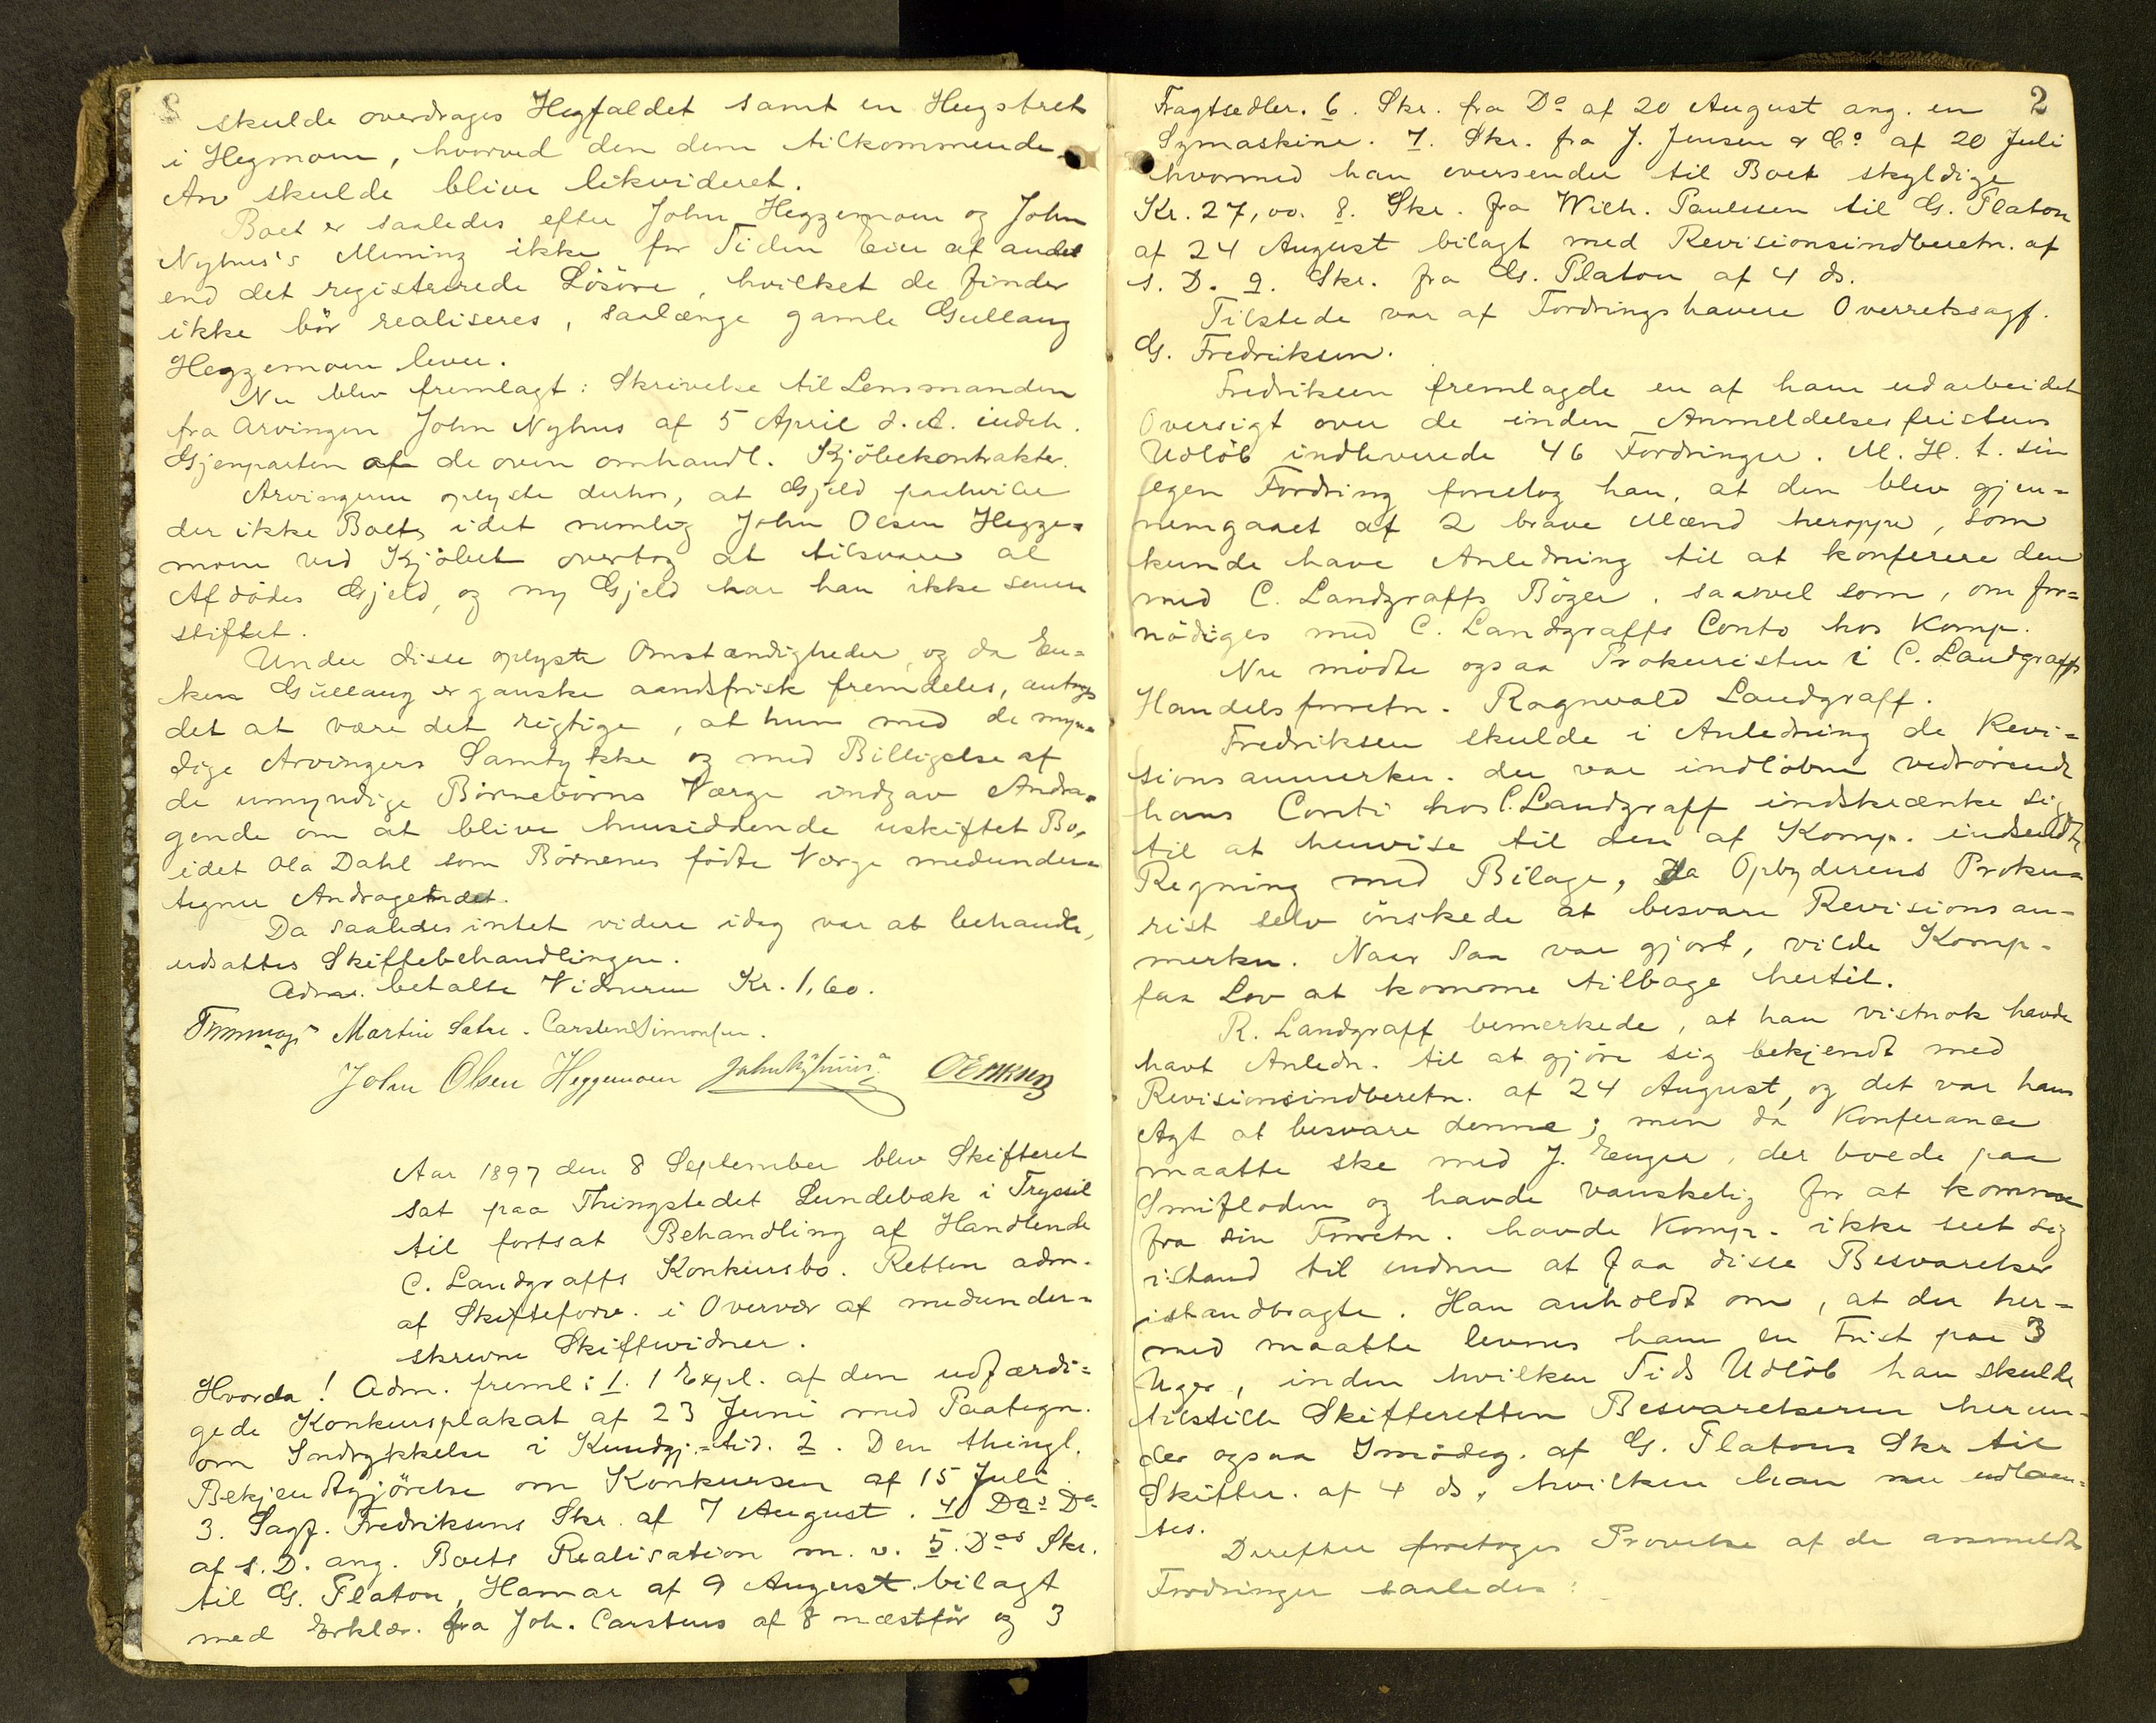 skulde overdrages Hegfaldet samt en Hugstret
i Hegmoen, hvorved den dem tilkommende
Arv skulde blive likvideret.
Boet er saaledes efter John Heggemoen og John
Nyhus's Mening ikke for Tiden Eier af andet
end det registrerede Lösöre, hvilket de finder
ikke bör realiseres, saalænge gamle Gullaug
Heggemoen lever.
Nu blev fremlagt: Skrivelse til Lensmanden
fra Arvingen John Nyhus af 5 April d. A. indeh.
Gjenparten af de oven omhandl. Kjöbekontrakter.
Arvingerne oplyste derhos, at Gjeld paahviler
der ikke Boet, idet nemlig John Olsen Hegge=
moen ved Kjöbet overtog at tilsvare al
Afdödes Gjeld, og ny Gjeld har han ikke senere
stiftet.
Under disse oplyste Omstændigheder, og da En=
ken Gullaug er ganske aandsfrisk fremdeles, antoges
det at være det rigtige, at hun med de myn=
dige Arvingers Samtykke og med Billigelse af
de umyndige Börnebörns Værge indgav Andra=
gende om at blive hensiddende uskiftet Bo,
idet Ola Dahl som Börnenes födte Værge medunder=
tegner Andragendet.
Da saaledes intet videre idag var at behandle,
udsattes Skiftebehandlingen.
Adm. betalte Vidnerne Kr. 1,60.
Martin Sætre. Carsten Simonsen.
John Olsen Heggemoen John Nyhuus OEriksen
Aar 1897 den 8 September blev Skifteret
sat paa Thingstedet Lundebæk i Trysil
til fortsat Behandling af Handlende
C. Landgraffs Konkursbo. Retten adm.
af Skifteforv. i Overvær af medunder=
skrevne Skiftevidner.
Hvorda! Adm. freml: 1. 1 Expl. af den udfærdi=
gede Konkursplakat af 23 Juni med Paategn.
om Indrykkelse i Kundgj.=tid. 2. Den thingl.
Bekjendtgjörelse om Konkursen af 15 Juli.
3. Sagf. Fredriksens Skr. af 7 August. 4 Dos Do
af s. D. ang. Boets Realisation m. v. 5. Dos Skr.
til G. Platou, Hamar af 9 August bilagt
med Erklær. fra Joh. Carstens af 8 næstför og 3
2
Fragtsedler. 6. Skr. fra Do af 20 August ang. en
Symaskine. 7. Skr. fra J. Jensen & Co af 20 Juli
hvormed han oversender til Boet skyldige
Kr. 27,00. 8. Skr. fra Wilh. Paulssen til G. Platou
af 24 August bilagt med Revisionsindberetn. af
s. D. 9. Skr. fra G. Platou af 4 ds.
Tilstede var af Fordringshavere Overretssagf.
G. Fredriksen.
Fredriksen fremlagde en af ham udarbeidet
Oversigt over de inden Anmeldelsesfristens
Udlöb indleverede 46 Fordringer. M. H. t. sin
egen Fordring foreslog han, at den blev gjen=
nemgaaet af 2 brave Mænd heroppe, som
kunde have Anledning til at konferere den
med C. Landgraffs Böger, saavel som, om for=
nödiges med C. Landgraffs Conto hos Komp.
Nu mödte ogsaa Prokuristen i C. Landgraffs
Handelsforretn. Ragnvald Landgraff.
Fredriksen skulde i Anledning de Revi=
sionsanmerkn. der var indlöbne vedrörende
hans Conti hos C. Landgraff indskrænke sig
til at henvise til den af Komp. indsendte
Regning med Bilage, da Opbyderens Proku=
rist selv önskede at besvare Revisionsan=
merkn. Naar saa var gjort, vilde Komp.
faa Lov at komme tilbage hertil.
R. Landgraff bemerkede, at han vistnok havde
havt Anledn. til at gjöre sig bekjendt med
Revisionsindberetn. af 24 August, og det var hans
Agt at besvare denne; men da Konferance
maatte ske med J. Enger, der boede paa
Smifloden og havde vanskelig for at komme
fra sin Forretn. havde Komp. ikke seet sig
istand til endnu at faa disse Besvarelser
istandbragte. Han anholdt om, at der her=
med maatte levnes ham en Frist paa 3
Uger, inden hvilken Tids Udlöb han skulde
tilstille Skifteretten Besvarelserne herun=
der ogsaa Imödeg. af G. Platous Skr til
Skifter. af 4 ds, hvilken han nu udlaan=
tes.
Derefter foretoges Prövelse af de anmeldte
Fordringer saaledes: